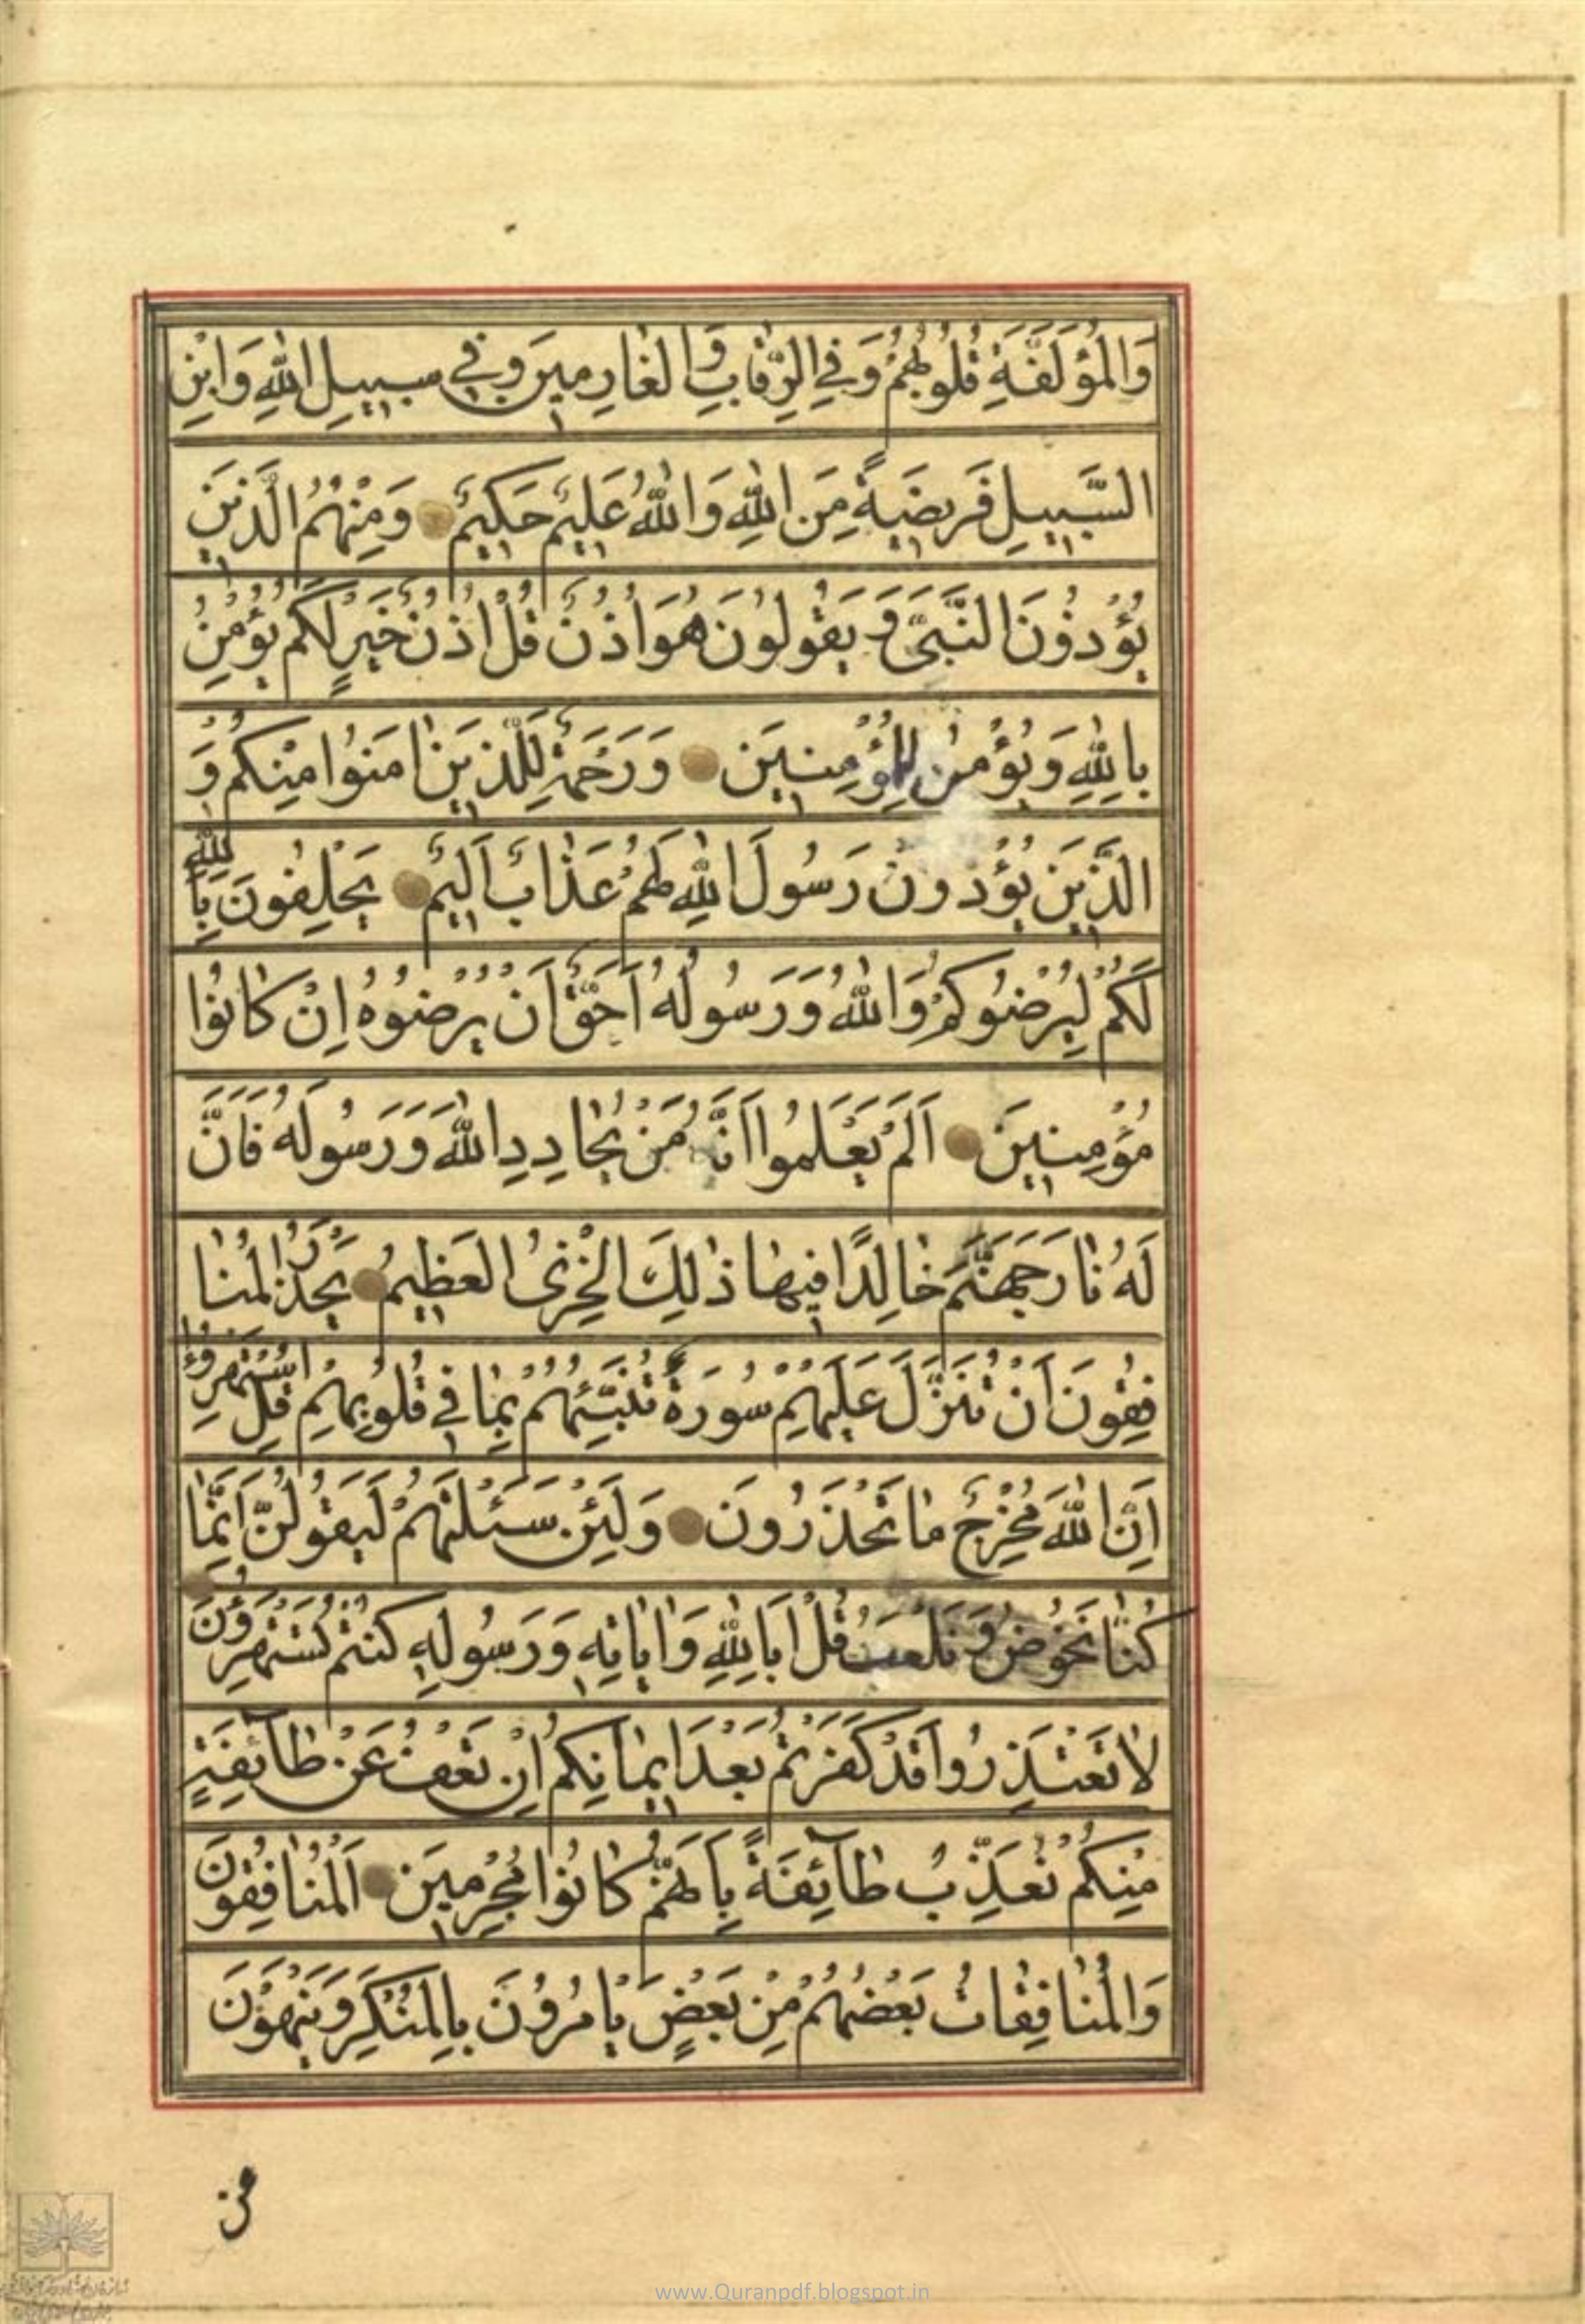 وَالْمُؤَلَّفَةِ قُلُوبُهُمْ وَفِي الرِّقَابِ وَالْغَارِمِينَ وَفِي سَبِيلِ اللَّهِ وَابْنِ
السَّبِيلِ فَرِيضَةً مِنَ اللَّهِ وَاللَّهُ عَلِيمٌ حَكِيمٌ وَمِنْهُمُ الَّذِينَ
يُؤْذُونَ النَّبِيَّ وَيَقُولُونَ هُوَ أُذُنٌ قُلْ أُذُنُ خَيْرٍ لَكُمْ يُؤْمِنُ
بِاللَّهِ وَيُؤْمِنُ لِلْمُؤْمِنِينَ وَرَحْمَةٌ لِلَّذِينَ امَنُوا مِنْكُمْ وَ
الَّذِينَ يُؤْذُونَ رَسُولَ اللَّهِ لَهُمْ عَذَابٌ اَلِيمٌ يَحْلِفُونَ بِاللَّهِ
لَكُمْ لِيُرْضُوكُمْ وَاللَّهُ وَرَسُولُهُ اَحَقُّ اَنْ يُرْضُوهُ اِنْ كَانُوا
مُؤْمِنِينَ اَلَمْ يَعْلَمُوا اَنَّهُ مَنْ يُحَادِدِ اللَّهَ وَرَسُولَهُ فَاَنَّ
لَهُ نَارَ جَهَنَّمَ خَالِدًا فِيهَا ذٰلِكَ الْخِزْىُ الْعَظِيمُ يَحْذَرُ الْمُنَا
فِقُونَ اَنْ تُنَزَّلَ عَلَيْهِمْ سُورَةٌ تُنَبِّئُهُمْ بِمَا فِي قُلُوبِهِمْ قُلِ اسْتَهْزِؤُا
اِنَّ اللَّهَ مُخْرِجٌ مَا تَحْذَرُونَ وَلَئِنْ سَئَلْتَهُمْ لَيَقُولُنَّ اِنَّمَا
كُنَّا نَخُوضُ وَنَلْعَبُ قُلْ اَبِاللَّهِ وَايَاتِهِ وَرَسُولِهِ كُنْتُمْ تَسْتَهْزِؤُنَ
لَا تَعْتَذِرُوا قَدْ كَفَرْتُمْ بَعْدَ ايمَانِكُمْ اِنْ نَعْفُ عَنْ طَآئِفَةٍ
مِنْكُمْ نُعَذِّبْ طَآئِفَةً بِاَنَّهُمْ كَانُوا مُجْرِمِينَ اَلْمُنَافِقُونَ
وَالْمُنَافِقَاتُ بَعْضُهُمْ مِنْ بَعْضٍ يَاْمُرُونَ بِالْمُنْكَرِ وَيَنْهَوْنَ
من
www.Quranpdf.blogspot.in